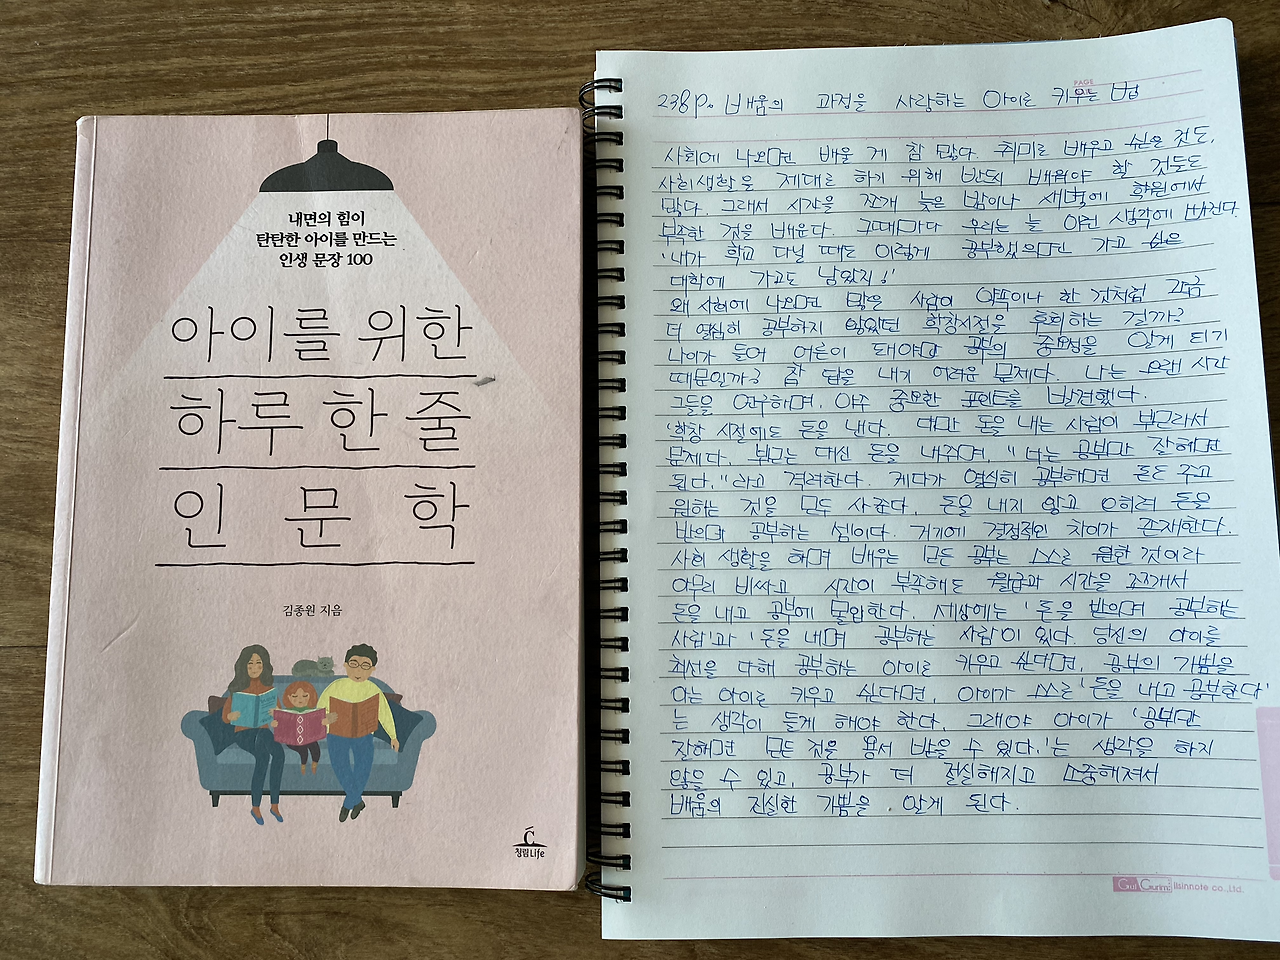 내면의 힘이
탄탄한 아이를 만드는
인생 문장 100
아이를 위한
하루 한 줄
인 문 학
김종원 지음
청림Life
PAGE
238p. 배움의 과정을 사랑하는 아이로 키우는 법
사회에 나오면 배울 게 참 많다. 취미로 배우고 싶은 것도,
사회생활을 제대로 하기 위해 반드시 배워야 할 것들도
많다. 그래서 시간을 쪼개 늦은 밤이나 새벽에 학원에서
부족한 것을 배운다. 그때마다 우리는 늘 이런 생각에 빠진다.
'내가 학교 다닐 때도 이렇게 공부했으면 가고 싶은
대학에 가고도 남았지!'
왜 사회에 나오면 많은 사람이 약속이나 한 것처럼 조금
더 열심히 공부하지 않았던 학창시절을 후회하는 걸까?
나이가 들어 어른이 돼야만 공부의 중요성을 알게 되기
때문인가? 참 답을 내기 어려운 문제다. 나는 오랜 시간
그들을 연구하며, 아주 중요한 포인트를 발견했다.
'학창 시절에도 돈을 낸다. 다만 돈을 내는 사람이 부모라서
문제다. 부모는 대신 돈을 내주며, "너는 공부만 잘하면
된다."라고 격려한다. 게다가 열심히 공부하면 돈도 주고
원하는 것을 모두 사준다. 돈을 내지 않고 오히려 돈을
받으며 공부하는 셈이다. 거기에 결정적인 차이가 존재한다.
사회 생활을 하며 배우는 모든 공부는 스스로 원한 것이라
아무리 비싸고 시간이 부족해도 월급과 시간을 쪼개서
돈을 내고 공부에 몰입한다. 세상에는 '돈을 받으며 공부하는
사람'과 '돈을 내며 공부하는 사람'이 있다. 당신의 아이를
최선을 다해 공부하는 아이로 키우고 싶다면, 공부의 기쁨을
아는 아이로 키우고 싶다면, 아이가 스스로 '돈을 내고 공부한다'
는 생각이 들게 해야 한다. 그래야 아이가 '공부만
잘하면 모든 것을 용서 받을 수 있다.'는 생각을 하지
않을 수 있고, 공부가 더 절실해지고 소중해져서
배움의 진실한 기쁨을 알게 된다.
Gui Gurim ilsinnote co.,Ltd.